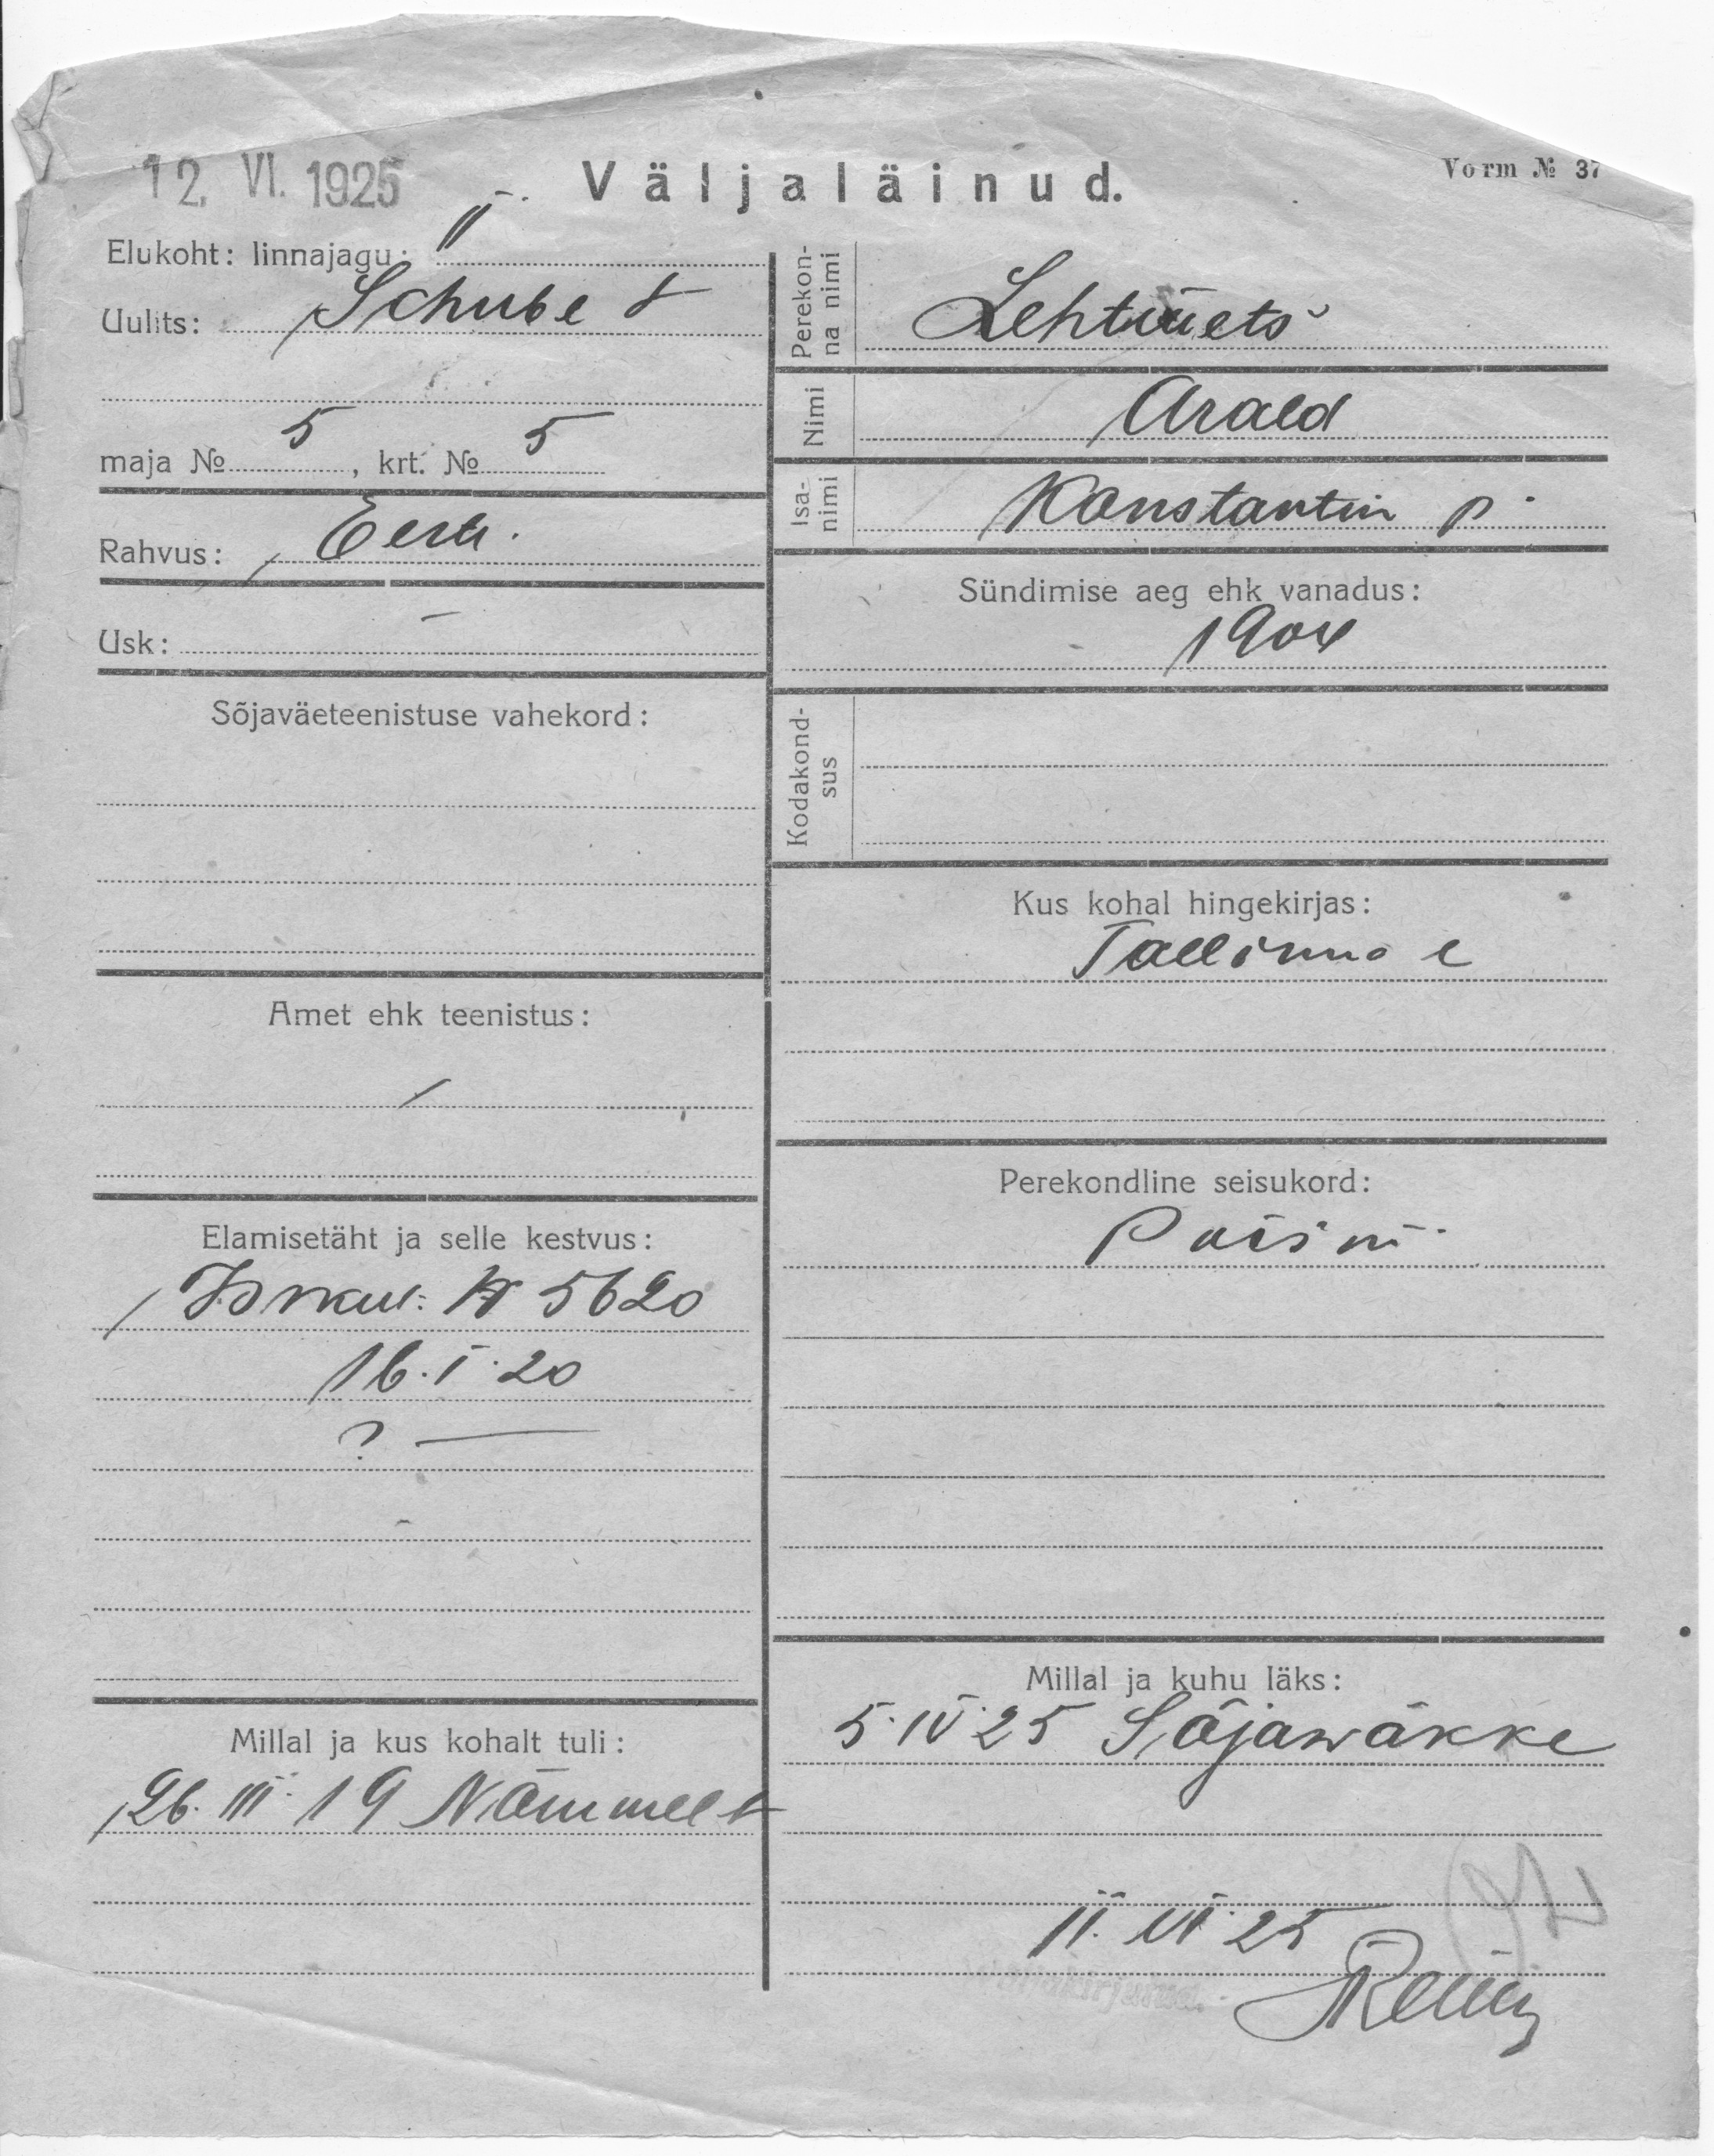 12. VI. 1925
Väljaläinud.
Vorm № 37
Elukoht: linnajagu: II
Uulits: Schube t
maja № 5, krt. № 5
Rahvus: Eesti.
Usk: —
Sõjaväeteenistuse vahekord:
Amet ehk teenistus:
Elamisetäht ja selle kestvus:
№ 5620
16. I. 20
? —
Millal ja kus kohalt tuli:
26. III. 19 Nõmmelt
Perekonna nimi
Lehtmets
Nimi
Arald
Isanimi
Konstantin p.
Sündimise aeg ehk vanadus:
1904
Kodakondsus
Kus kohal hingekirjas:
Tallinna l
Perekondline seisukord:
Poism.
Millal ja kuhu läks:
5. IV 25 Sõjawäkke
11. VI. 25